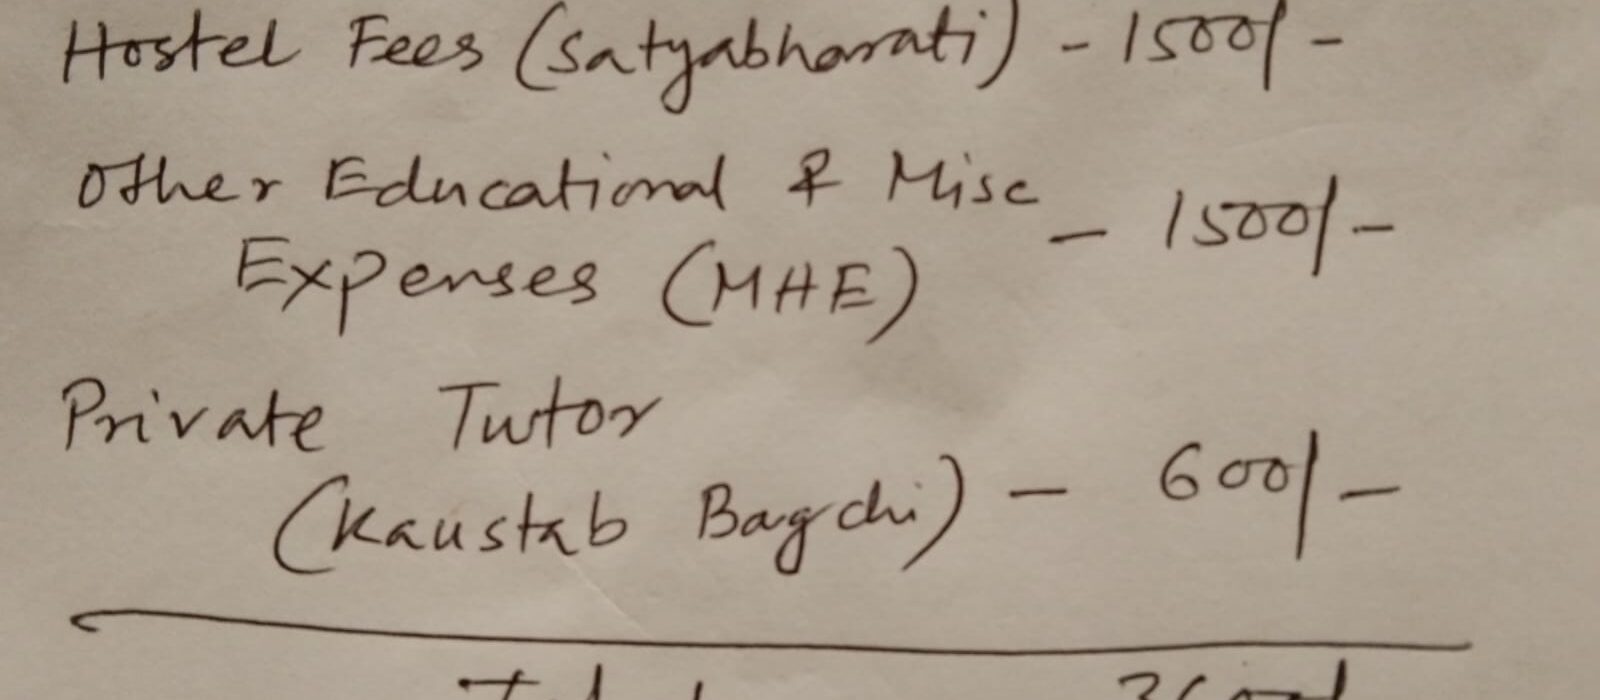 Hostel Fees (Satyabharati) - 1500/-
Other Educational & Misc
Expenses (MHE) - 1500/-
Private Tutor
(Kaustab Bagchi) - 600/-